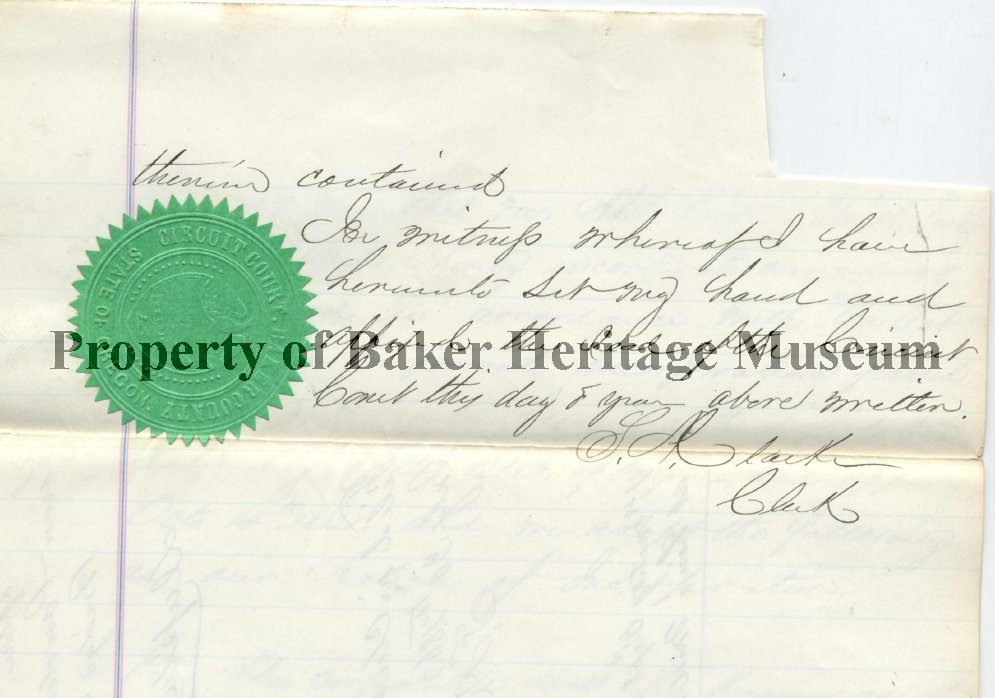 therein contained
In witness whereof I have
hereunto set my hand and
affixed the seal of the Circuit
Court this day & year above written.
S. A. Clarke
Clerk
CIRCUIT COURT
STATE OF OREGON
Property of Baker Heritage Museum